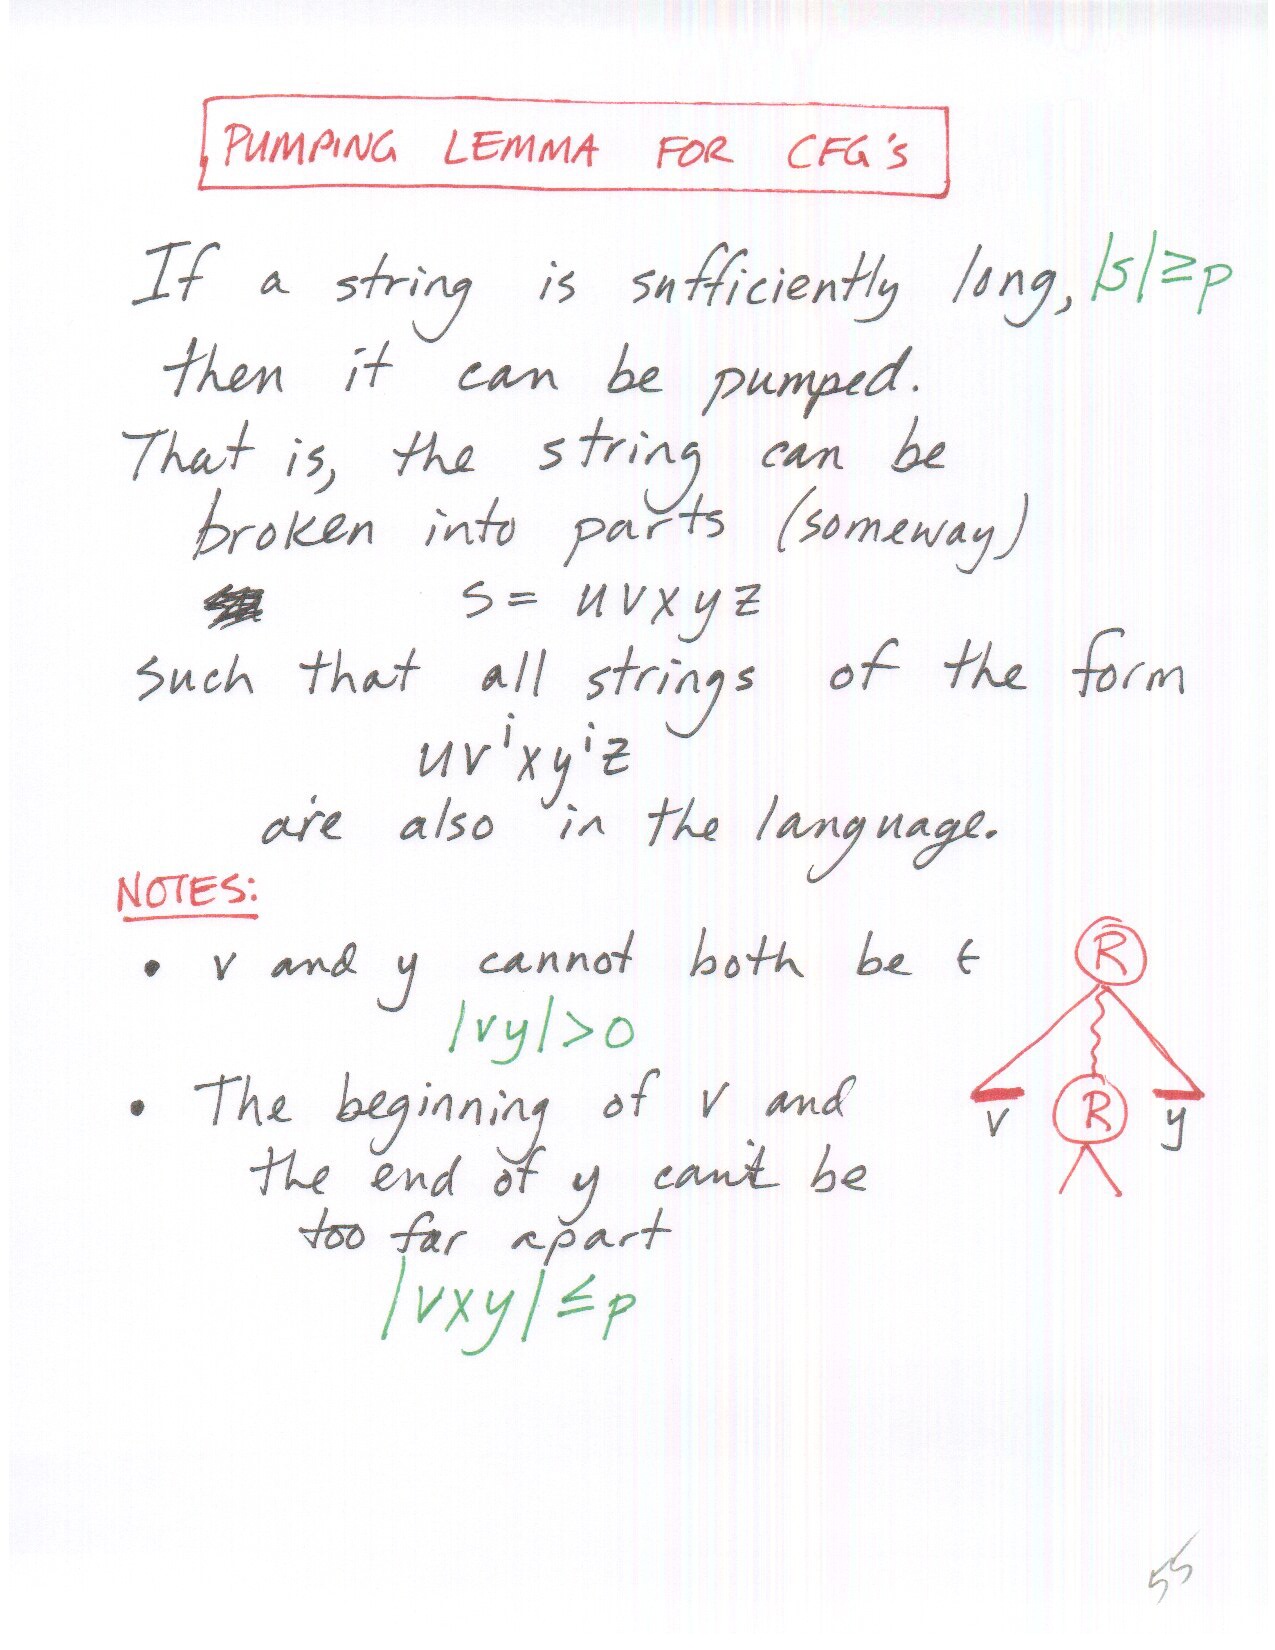 PUMPING LEMMA FOR CFG's
If a string is sufficiently long, |s|≥p
then it can be pumped.
That is, the string can be
broken into parts (someway)
s = uvxyz
such that all strings of the form
uvⁱxyⁱz
are also in the language.
NOTES:
• v and y cannot both be ε
|vy|>0
• The beginning of v and
the end of y can't be
too far apart
|vxy| ≤ p
R
R
v
y
55